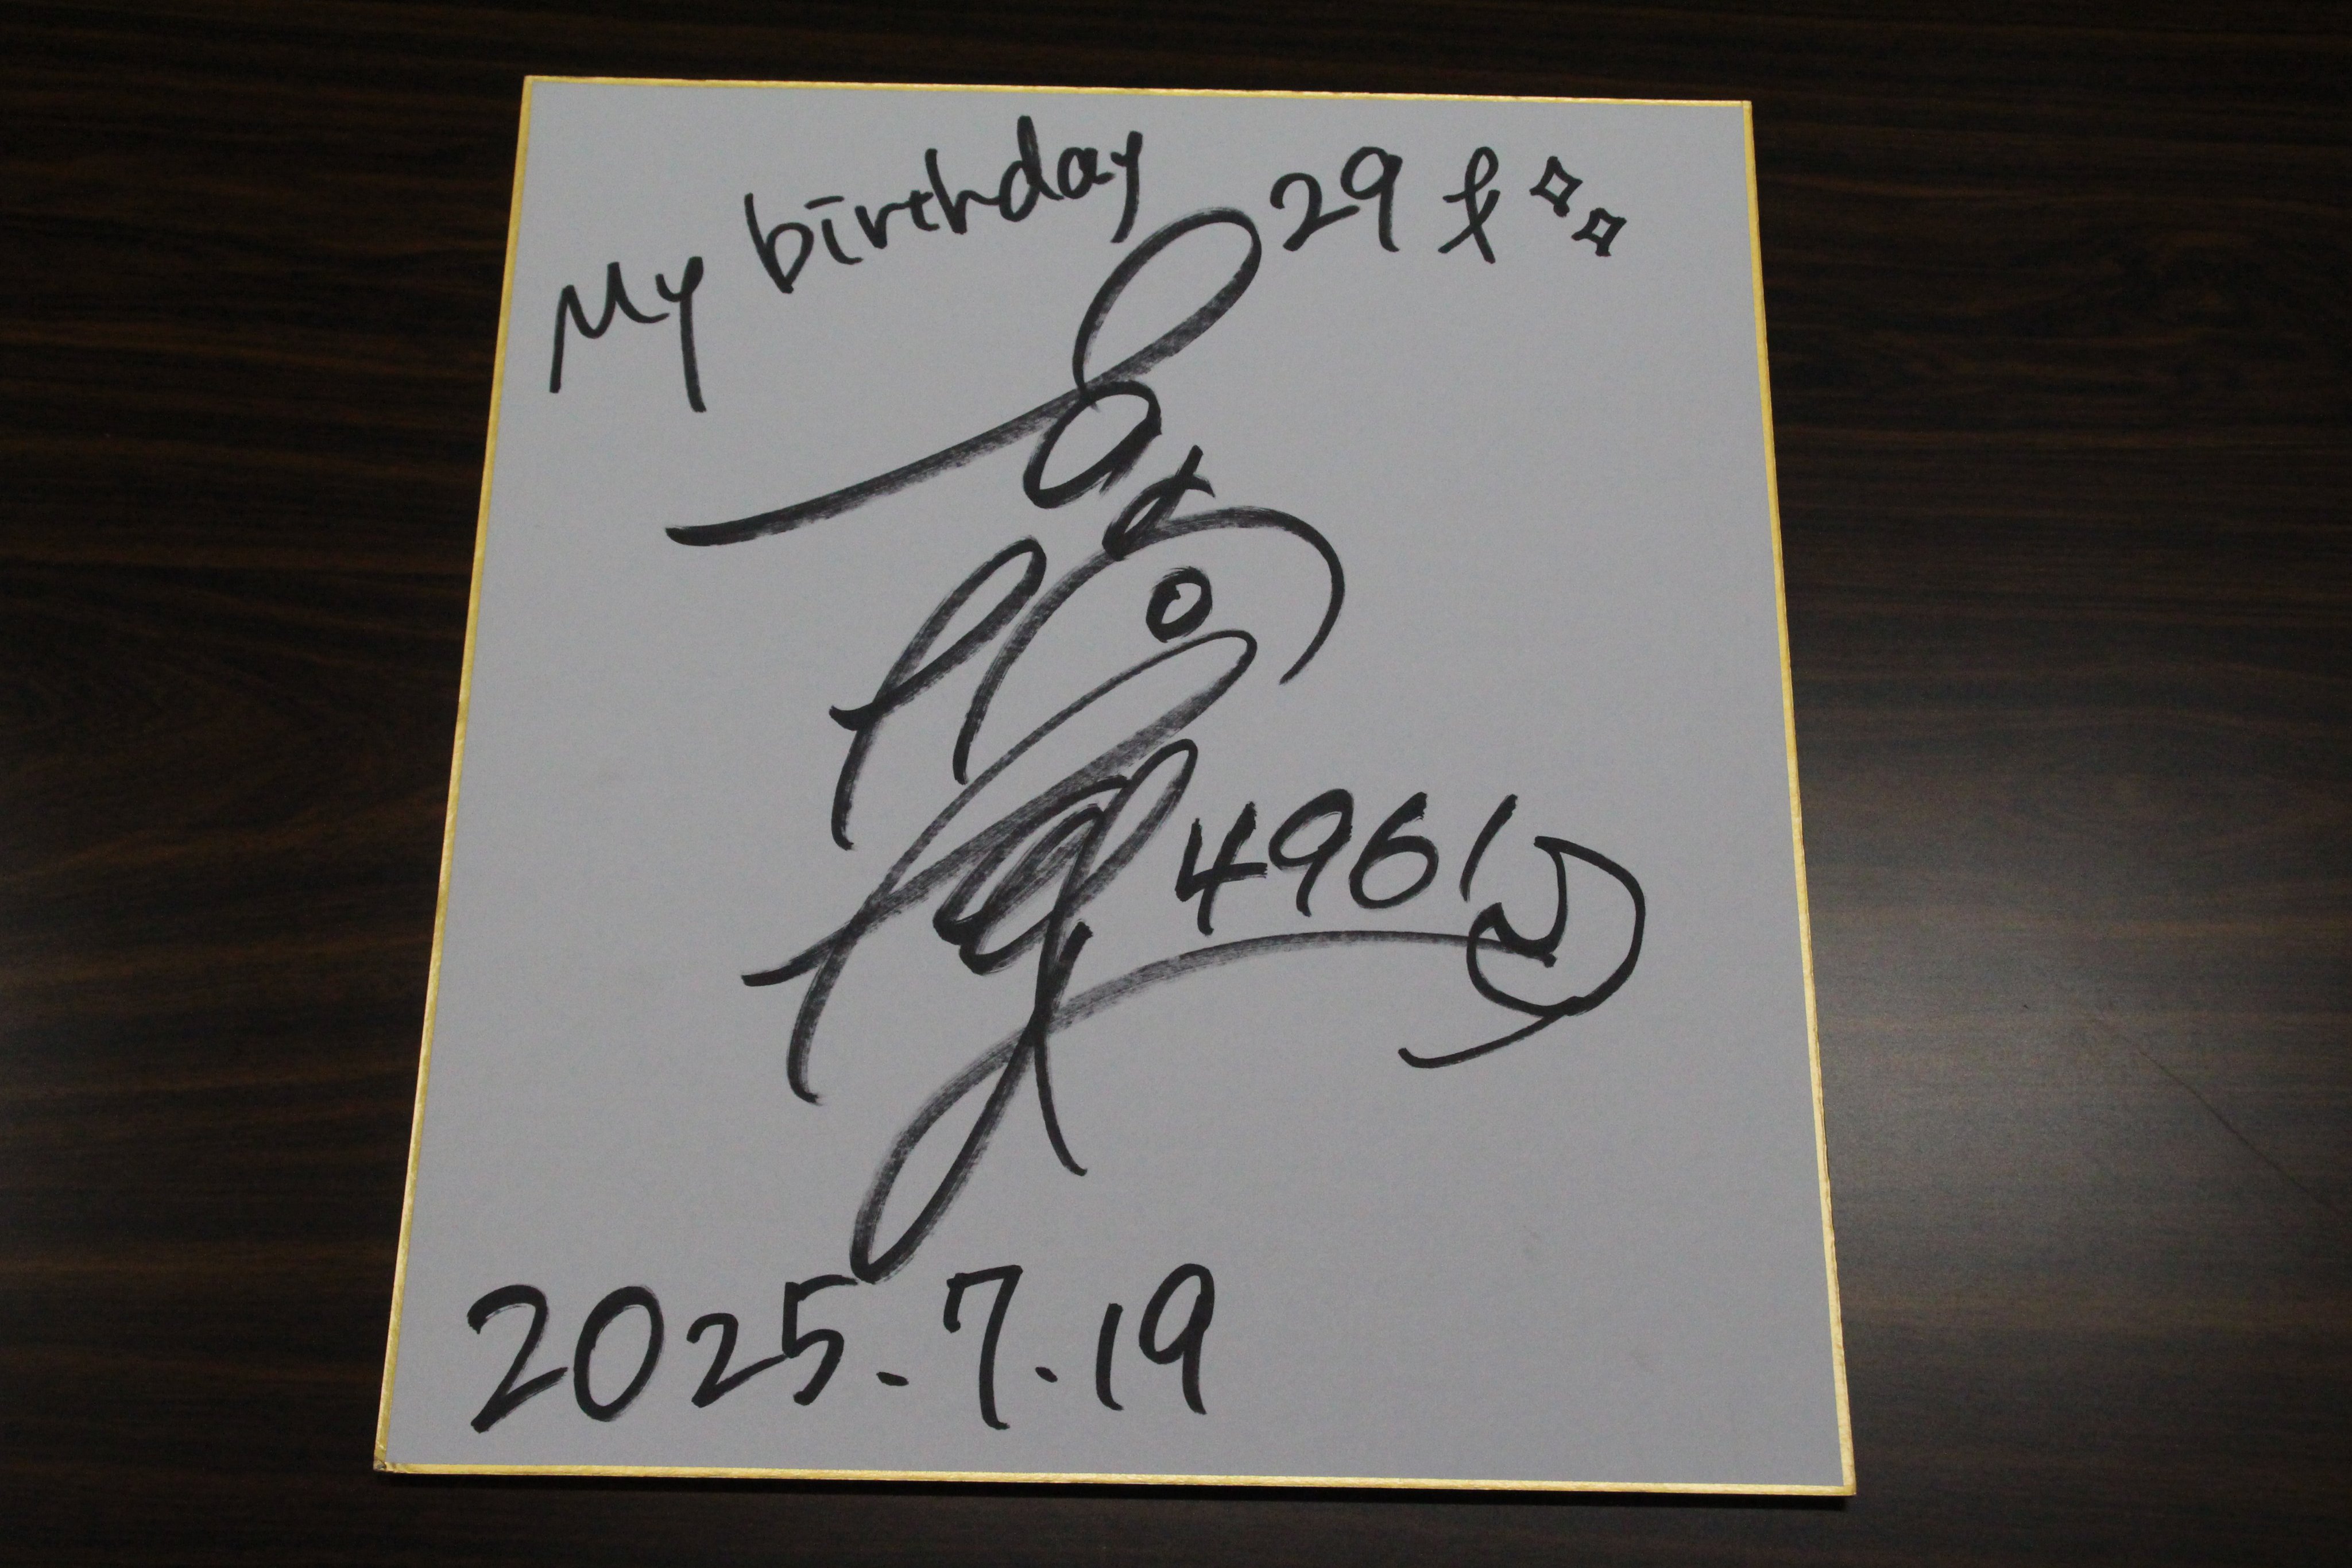 My birthday 29才
4961
2025.7.19